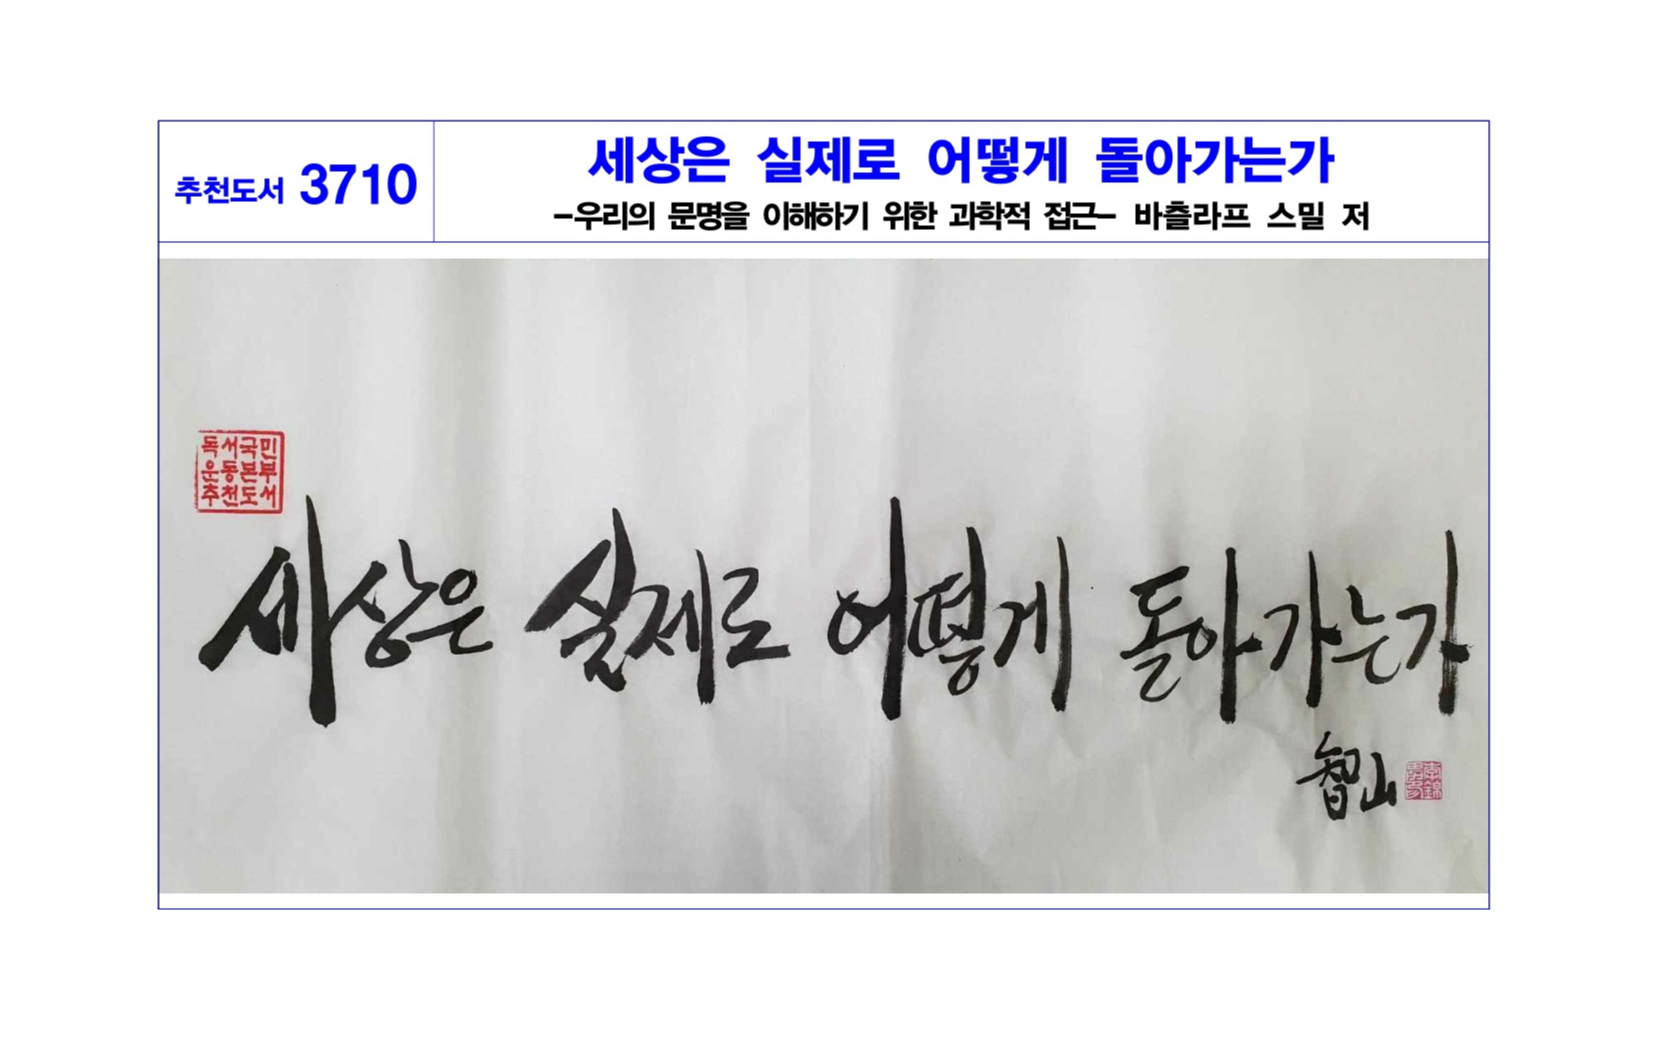 추천도서 3710
세상은 실제로 어떻게 돌아가는가
-우리의 문명을 이해하기 위한 과학적 접근- 바츨라프 스밀 저
독서국민
운동본부
추천도서
세상은 실제로 어떻게 돌아가는가
智山